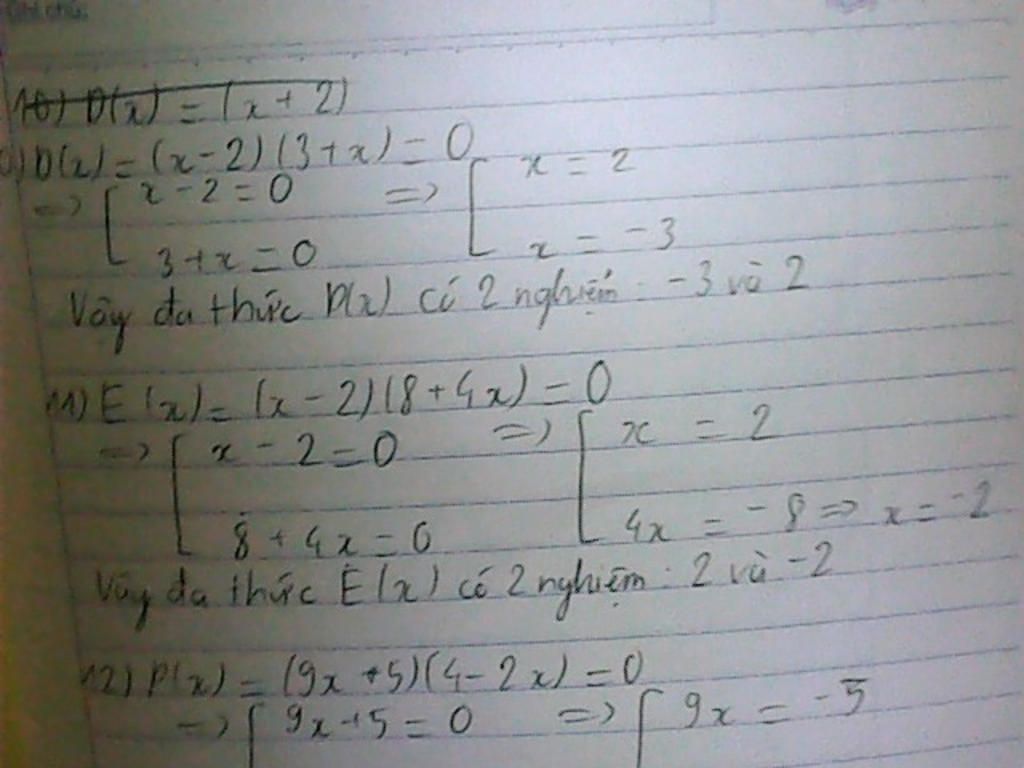 Ghi chú:
10) D(x) = (x + 2)
D(x) = (x - 2)(3 + x) = 0
=> [ x - 2 = 0 => [ x = 2
3 + x = 0 x = -3
Vậy đa thức D(x) có 2 nghiệm: -3 và 2
11) E(x) = (x - 2)(8 + 4x) = 0
=> [ x - 2 = 0 => [ x = 2
8 + 4x = 0 4x = -8 => x = -2
Vậy đa thức E(x) có 2 nghiệm: 2 và -2
12) P(x) = (9x + 5)(4 - 2x) = 0
=> [ 9x + 5 = 0 => [ 9x = -5